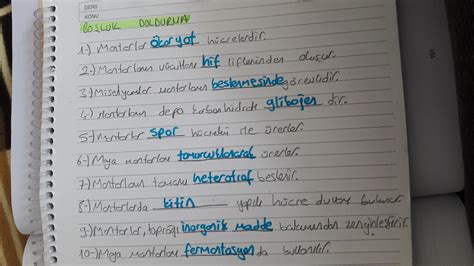 DERS
KONU
BOŞLUK DOLDURMA
1-) Mantarlar ökaryot hücrelerdir.
2-) Mantarların vücutları hif liflerinden oluşur.
3-) Miselyumlar mantarların beslenmesinde görevlidir.
4-) Mantarların depo karbonhidratı glikojen dir.
5-) Mantarlar spor hücreleri ile ürerler.
6-) Maya mantarları tomurcuklanarak ürerler.
7-) Mantarların tamamı heteratraf beslenir.
8-) Mantarlarda kitin yapılı hücre duvarı bulunur.
9-) Mantarlar, toprağı inorganik madde bakımından zenginleştirir.
10-) Maya mantarları fermantasyon da kullanılır.
151